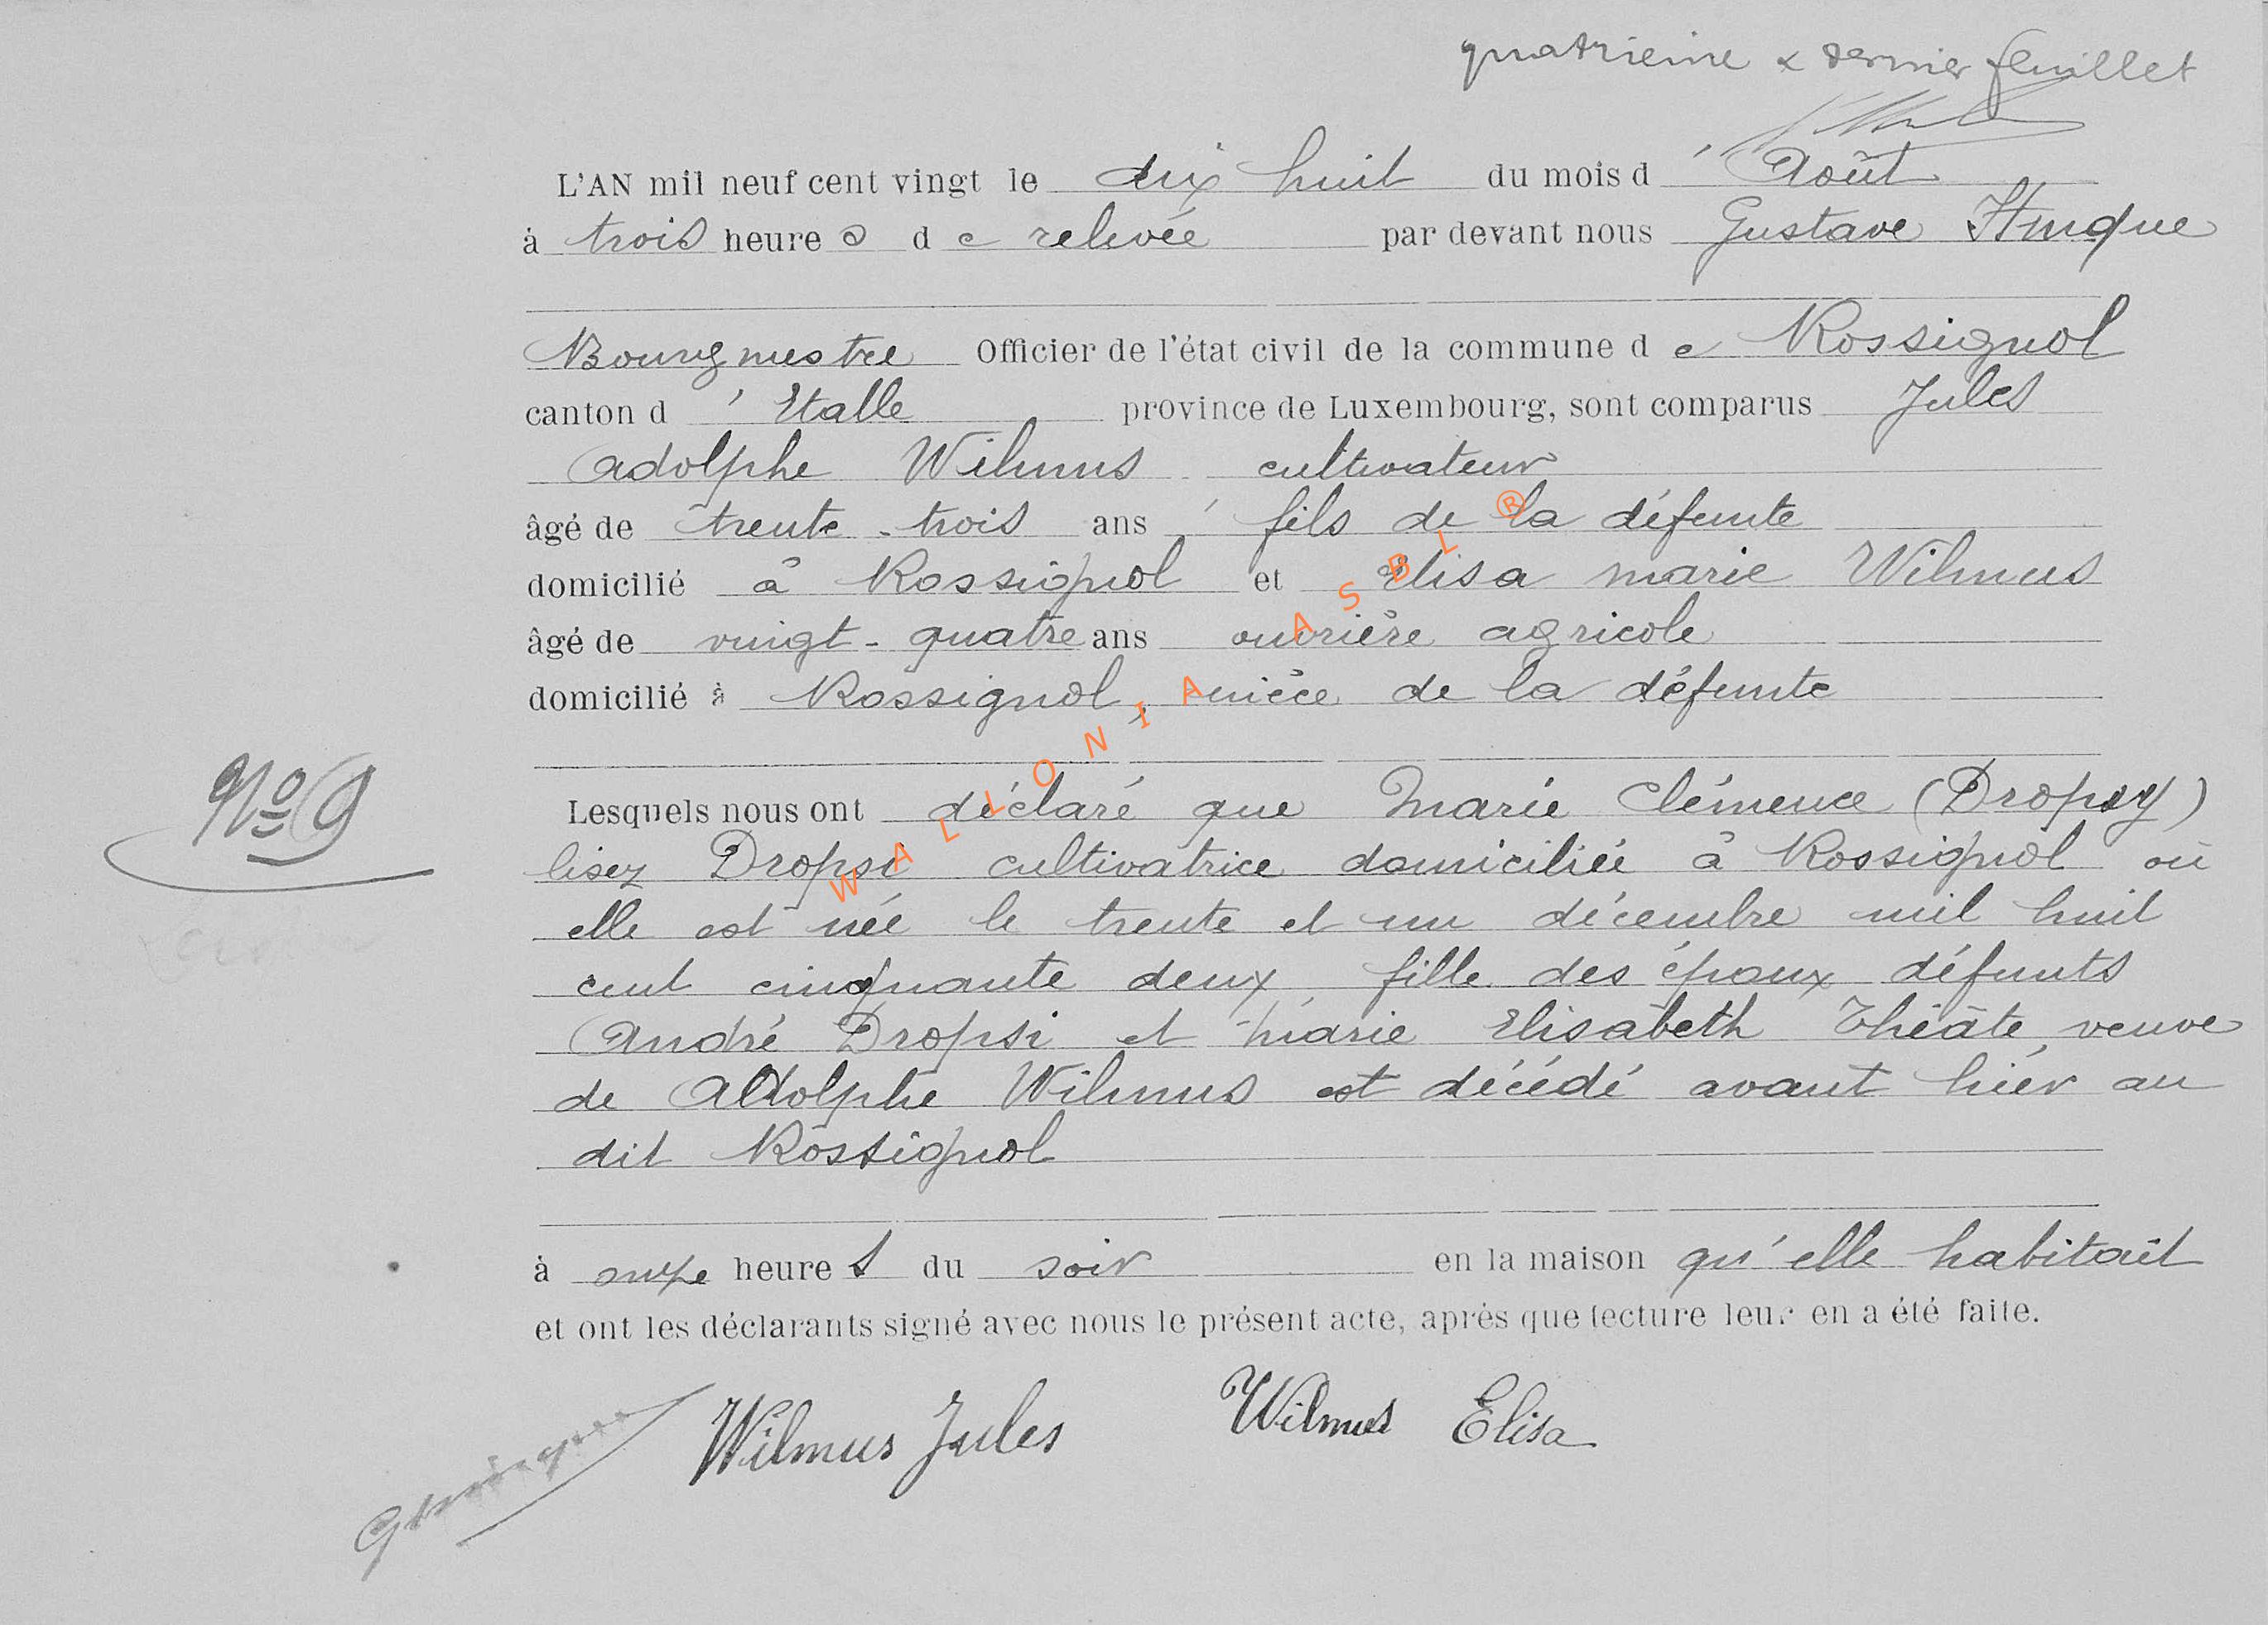 quatrieme & dernier feuillet
L'AN mil neuf cent vingt le dix huit du mois d'Août
à trois heures de relevée par devant nous Gustave Hinque
Bourgmestre Officier de l'état civil de la commune de Rossignol
canton d'Etalle province de Luxembourg, sont comparus Jules
Adolphe Wilmus cultivateur
âgé de trente-trois ans fils de la défunte
domicilié à Rossignol et Elisa marie Wilmus
âgé de vingt-quatre ans ouvrière agricole
domicilié à Rossignol, nièce de la défunte
No 9
Lesquels nous ont déclaré que Marie Clémence (Dropsy)
lisez Dropsi cultivatrice domiciliée à Rossignol où
elle est née le trente et un décembre mil huit
cent cinquante deux, fille des époux défunts
André Dropsi et Marie Elisabeth Théâte, veuve
de Adolphe Wilmus est décédé avant hier au
dit Rossignol
à onze heures du soir en la maison qu'elle habitait
et ont les déclarants signé avec nous le présent acte, après que lecture leur en a été faite.
Wilmus Jules Wilmus Elisa
WALLONIA ASBL ®